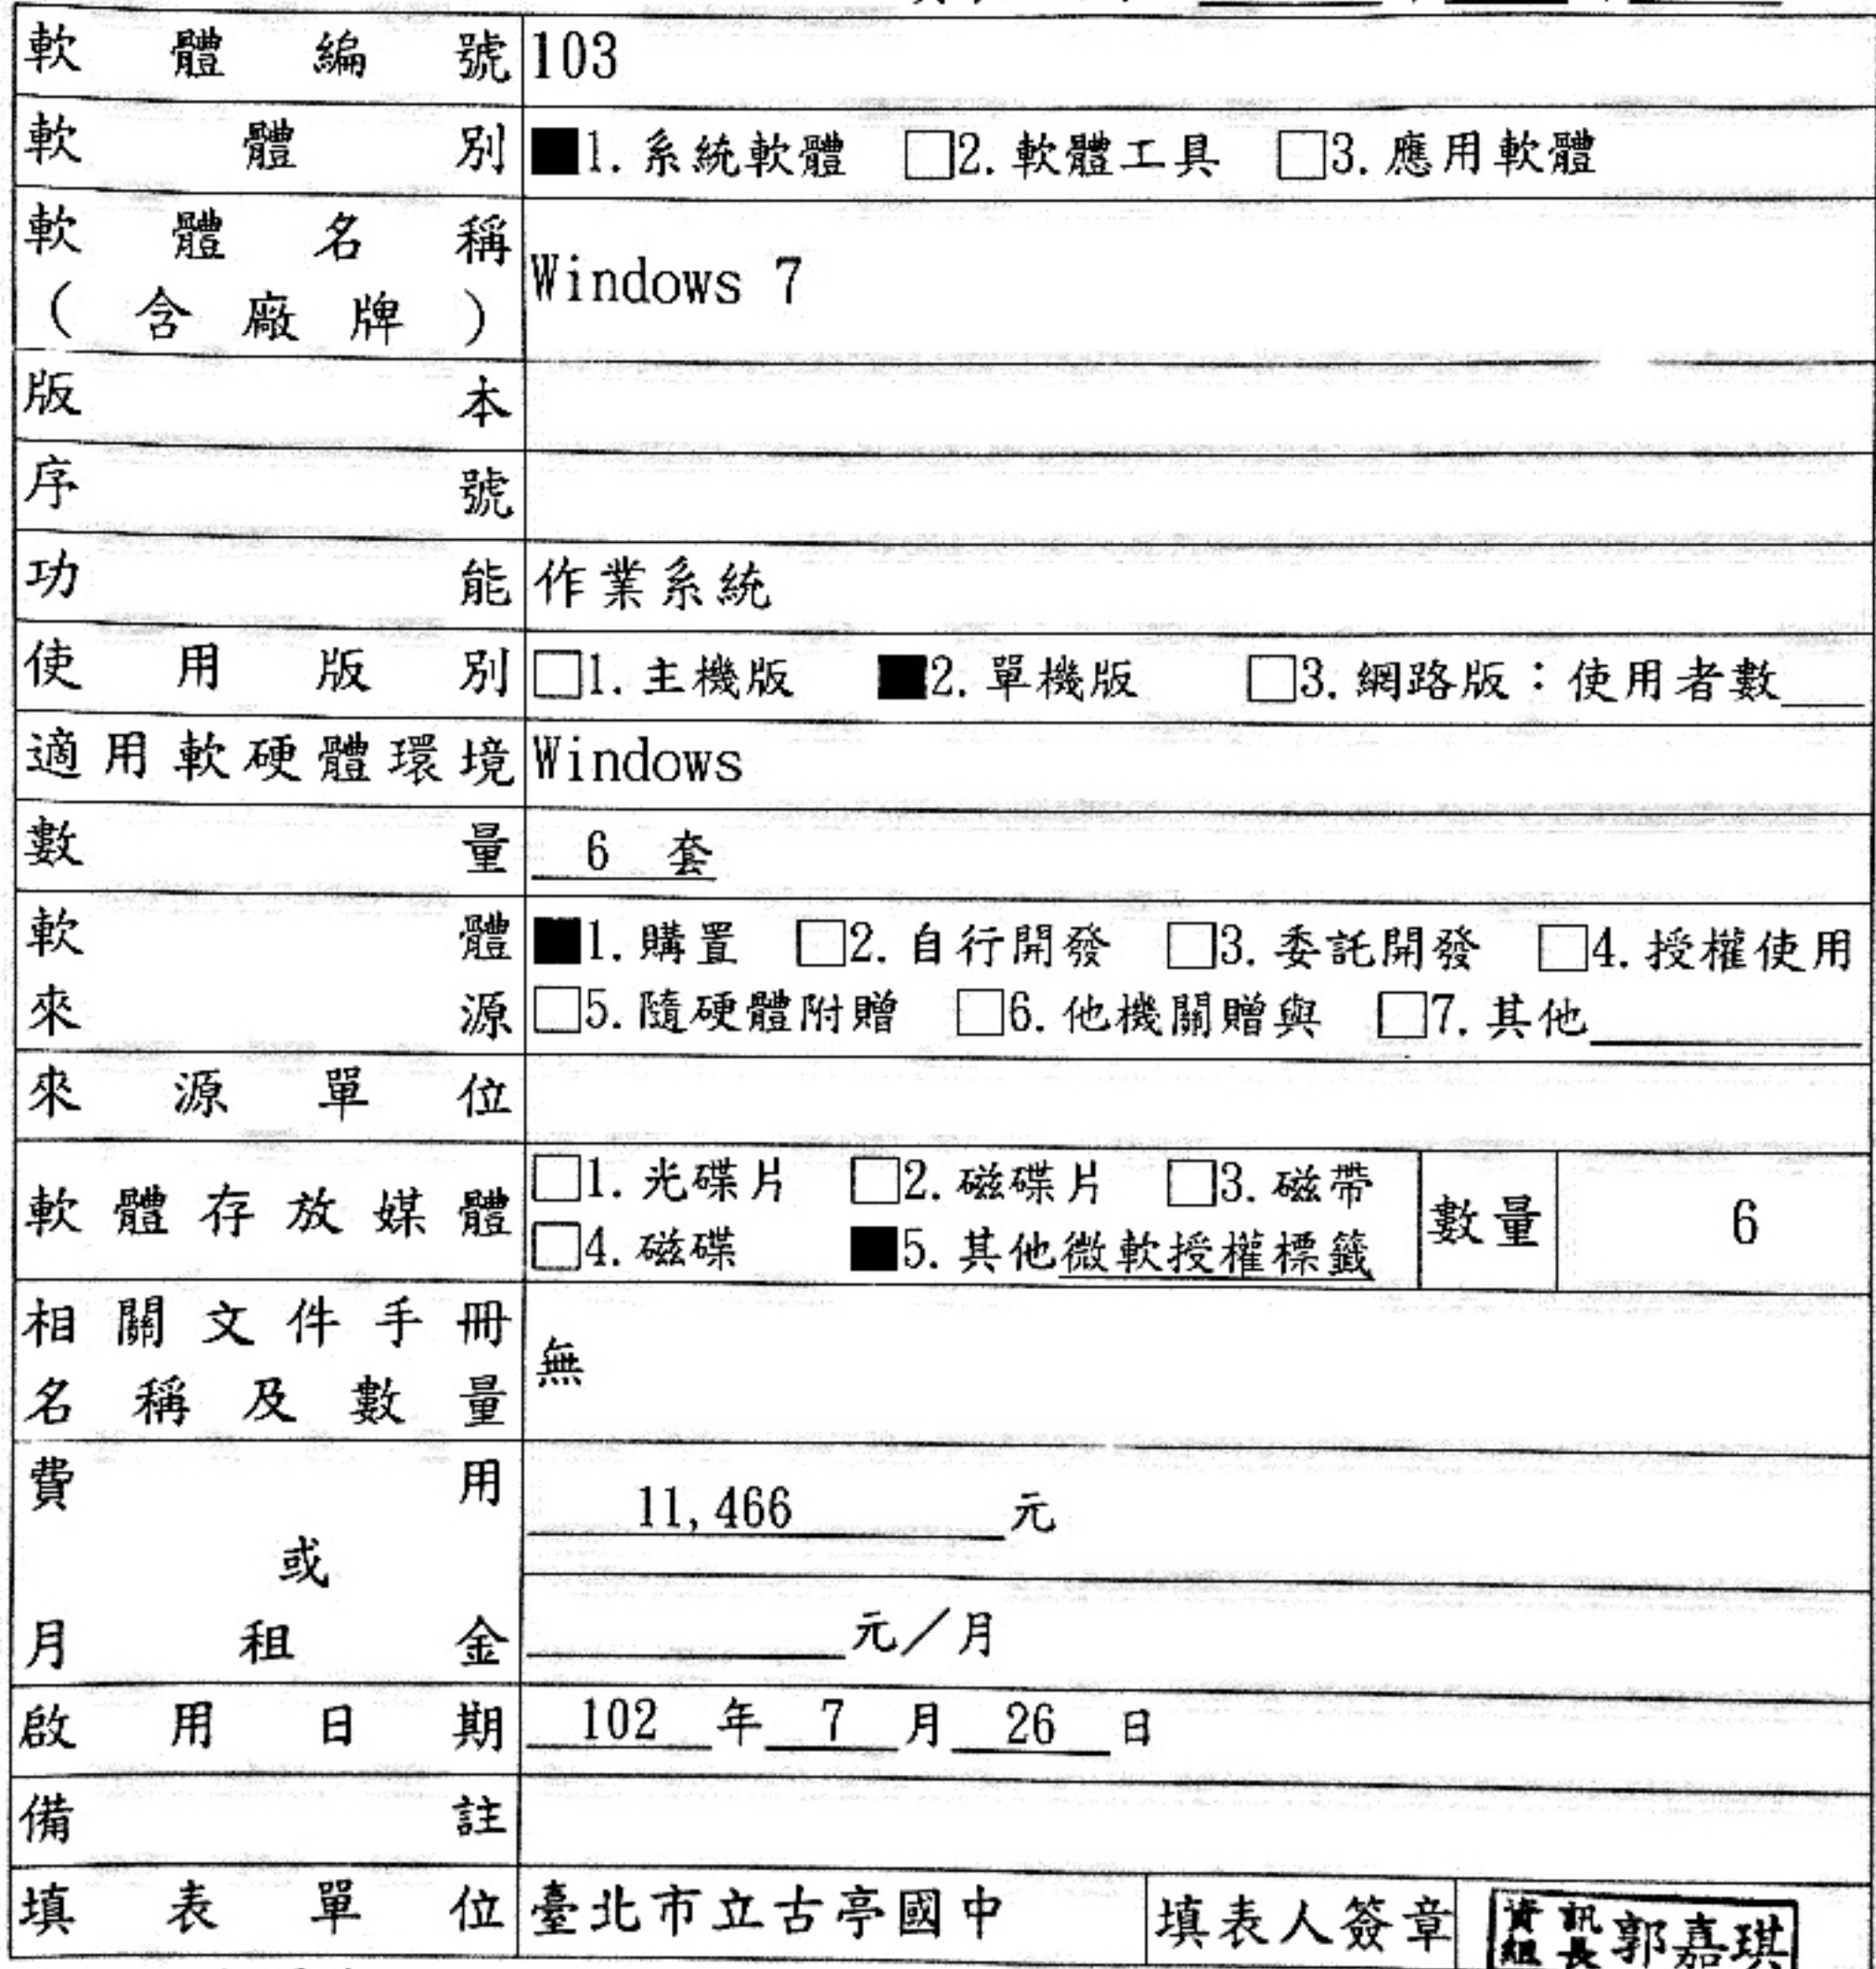 軟體編號 103
軟體別 ■1.系統軟體 □2.軟體工具 □3.應用軟體
軟體名稱
(含廠牌) Windows 7
版本
序號
功能 作業系統
使用版別 □1.主機版 ■2.單機版 □3.網路版：使用者數____
適用軟硬體環境 Windows
數量 6 套
軟體 ■1.購置 □2.自行開發 □3.委託開發 □4.授權使用
來源 □5.隨硬體附贈 □6.他機關贈與 □7.其他____
來源單位
軟體存放媒體 □1.光碟片 □2.磁碟片 □3.磁帶
□4.磁碟 ■5.其他微軟授權標籤 數量 6
相關文件手冊
名稱及數量 無
費用 11,466 元
或
月租金 ____元／月
啟用日期 102 年 7 月 26 日
備註
填表單位 臺北市立古亭國中 填表人簽章 資訊組長 郭嘉琪